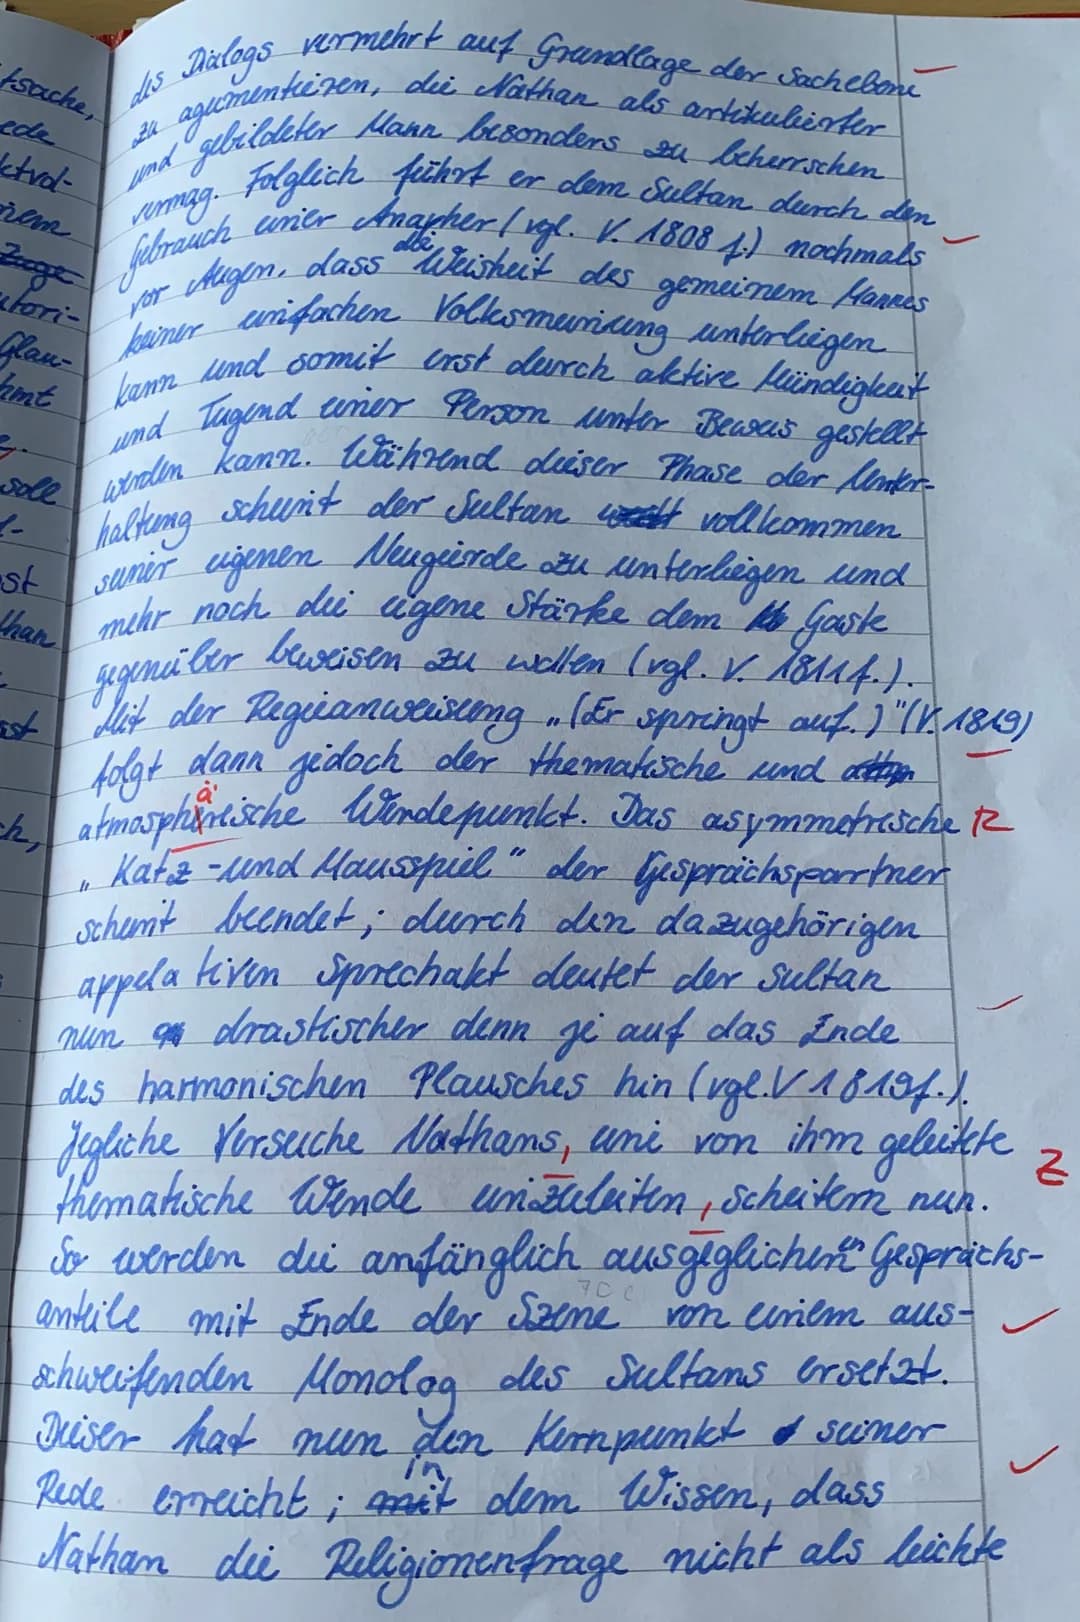 des Dialogs vermehrt auf Grundlage der Sachebene
zu agumentieren, die Nathan als artikulierter
und gebildeter Mann besonders zu beherrschen
vermag. Folglich führt er dem Sultan durch den
Gebrauch einer Anapher (vgl. V. 1808 f.) nochmals
vor Augen, dass die Weisheit des gemeinem Mannes
keiner einfachen Volksmeinung unterliegen
kann und somit erst durch aktive Mündigkeit
und Tugend einer Person unter Beweis gestellt
werden kann. Während dieser Phase der Unter-
haltung scheint der Sultan vollkommen
seiner eigenen Neugierde zu unterliegen und
mehr noch die eigene Stärke dem Gaste
gegenüber beweisen zu wollen (vgl. V. 1811f.).
Mit der Regieanweisung „(Er springt auf.)" (V. 1819)
folgt dann jedoch der thematische und
atmosphärische Wendepunkt. Das asymmetrische R
„Katz-und Mausspiel" der Gesprächspartner
scheint beendet; durch den dazugehörigen
appelativen Sprechakt deutet der Sultan
nun drastischer denn je auf das Ende
des harmonischen Plausches hin (vgl. V 1819f.).
Jegliche Versuche Nathans, eine von ihm geleitete Z
thematische Wende einzuleiten, scheitern nun.
So werden die anfänglich ausgeglichenen Gesprächs-
anteile mit Ende der Szene von einem aus-
schweifenden Monolog des Sultans ersetzt.
Dieser hat nun den Kernpunkt seiner
Rede erreicht; in dem Wissen, dass
Nathan die Religionenfrage nicht als leichte